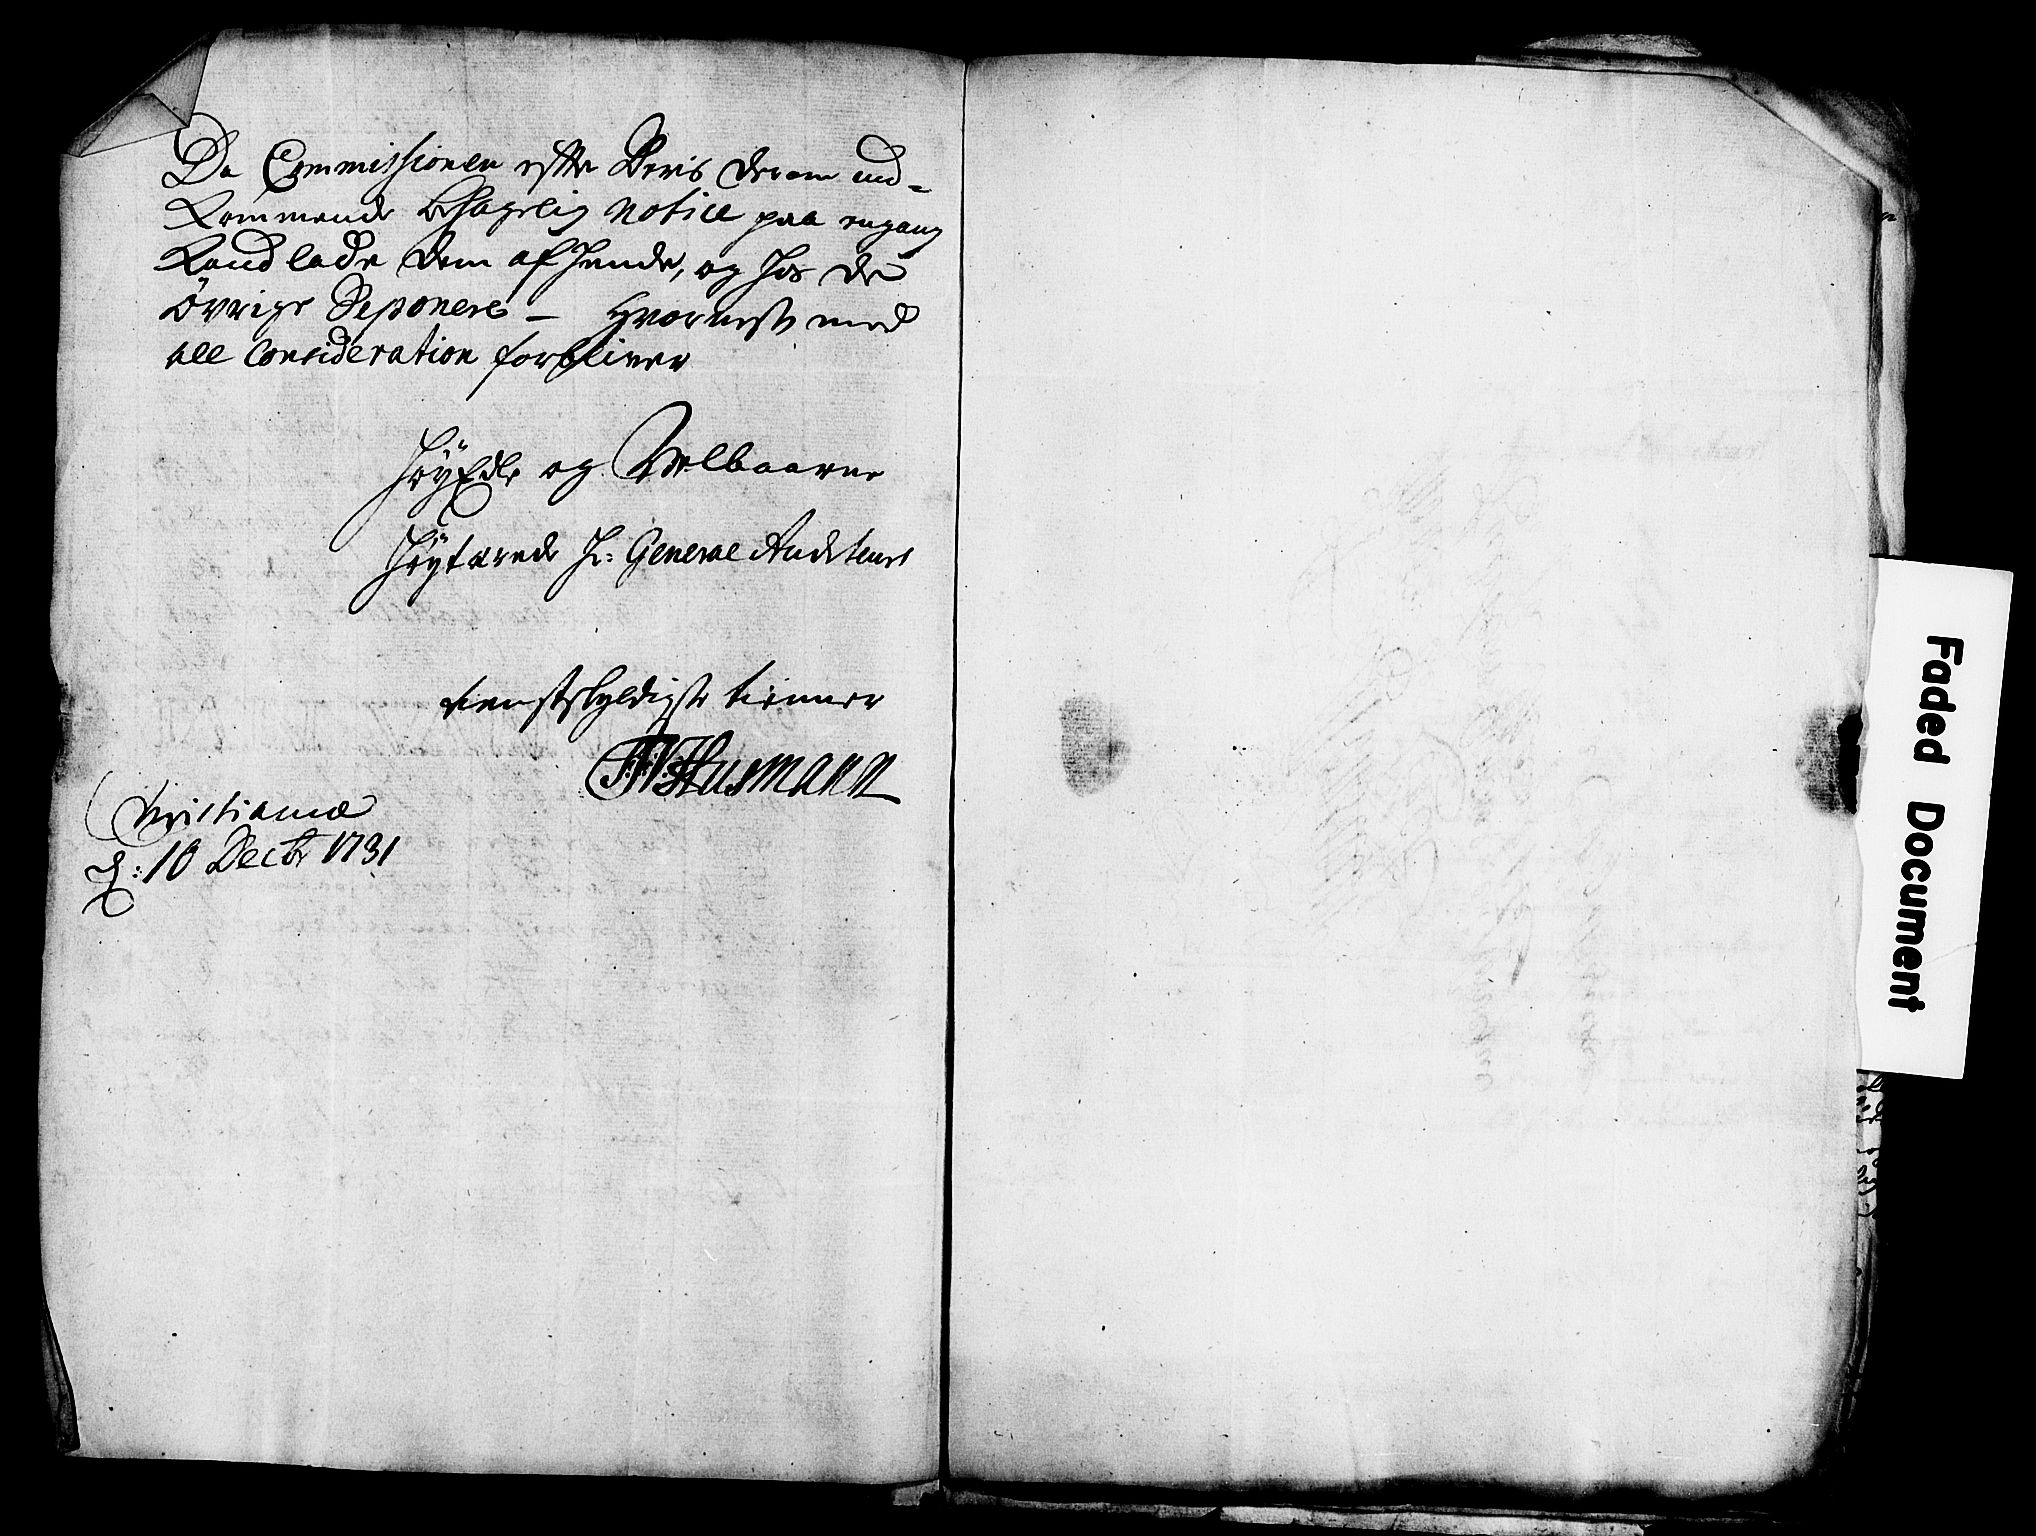 Da Commissionen efter Deris derom ind=
kommende behagelig notice paa engang
kand lade dem afhende, og hos de
övrige Deponere – Hvornest med
all Consideration forbliver
HöyEdle og Velbaarne
Höytærede Hr: General Auditeurs
tienstskyldigste tienner
Husmann
Christiania
d: 10 Decbr 1731
Faded Document